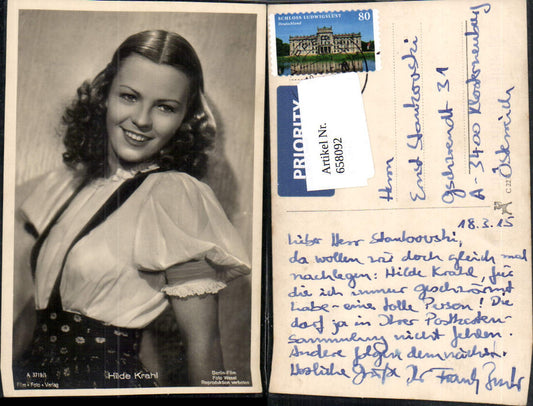 A 3718/1
Film-Foto-Verlag
Hilde Krahl
Berlin-Film
Foto Wesel
Reproduktion verboten
SCHLOSS LUDWIGSLUST
Deutschland
80
PRIORITY
Artikel Nr.
658092
Herrn
Ernst Stankovski
Gschwendt 31
A 3400 Klosterneuburg
Österreich
C 22
18.3.15
Lieber Herr Stankovski,
da wollen wir doch gleich mal
nachlegen: Hilde Krahl, für
die ich immer geschwärmt
habe - eine tolle Person! Die
darf ja in Ihrer Postkarten-
sammlung nicht fehlen.
Andere folgen demnächst.
Herzliche Grüße Ihr Frank